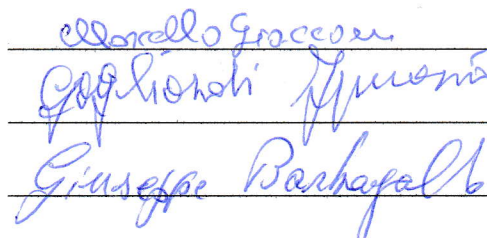 Marcello Giaccone
Gagliardi Ignazio
Giuseppe Barbagallo